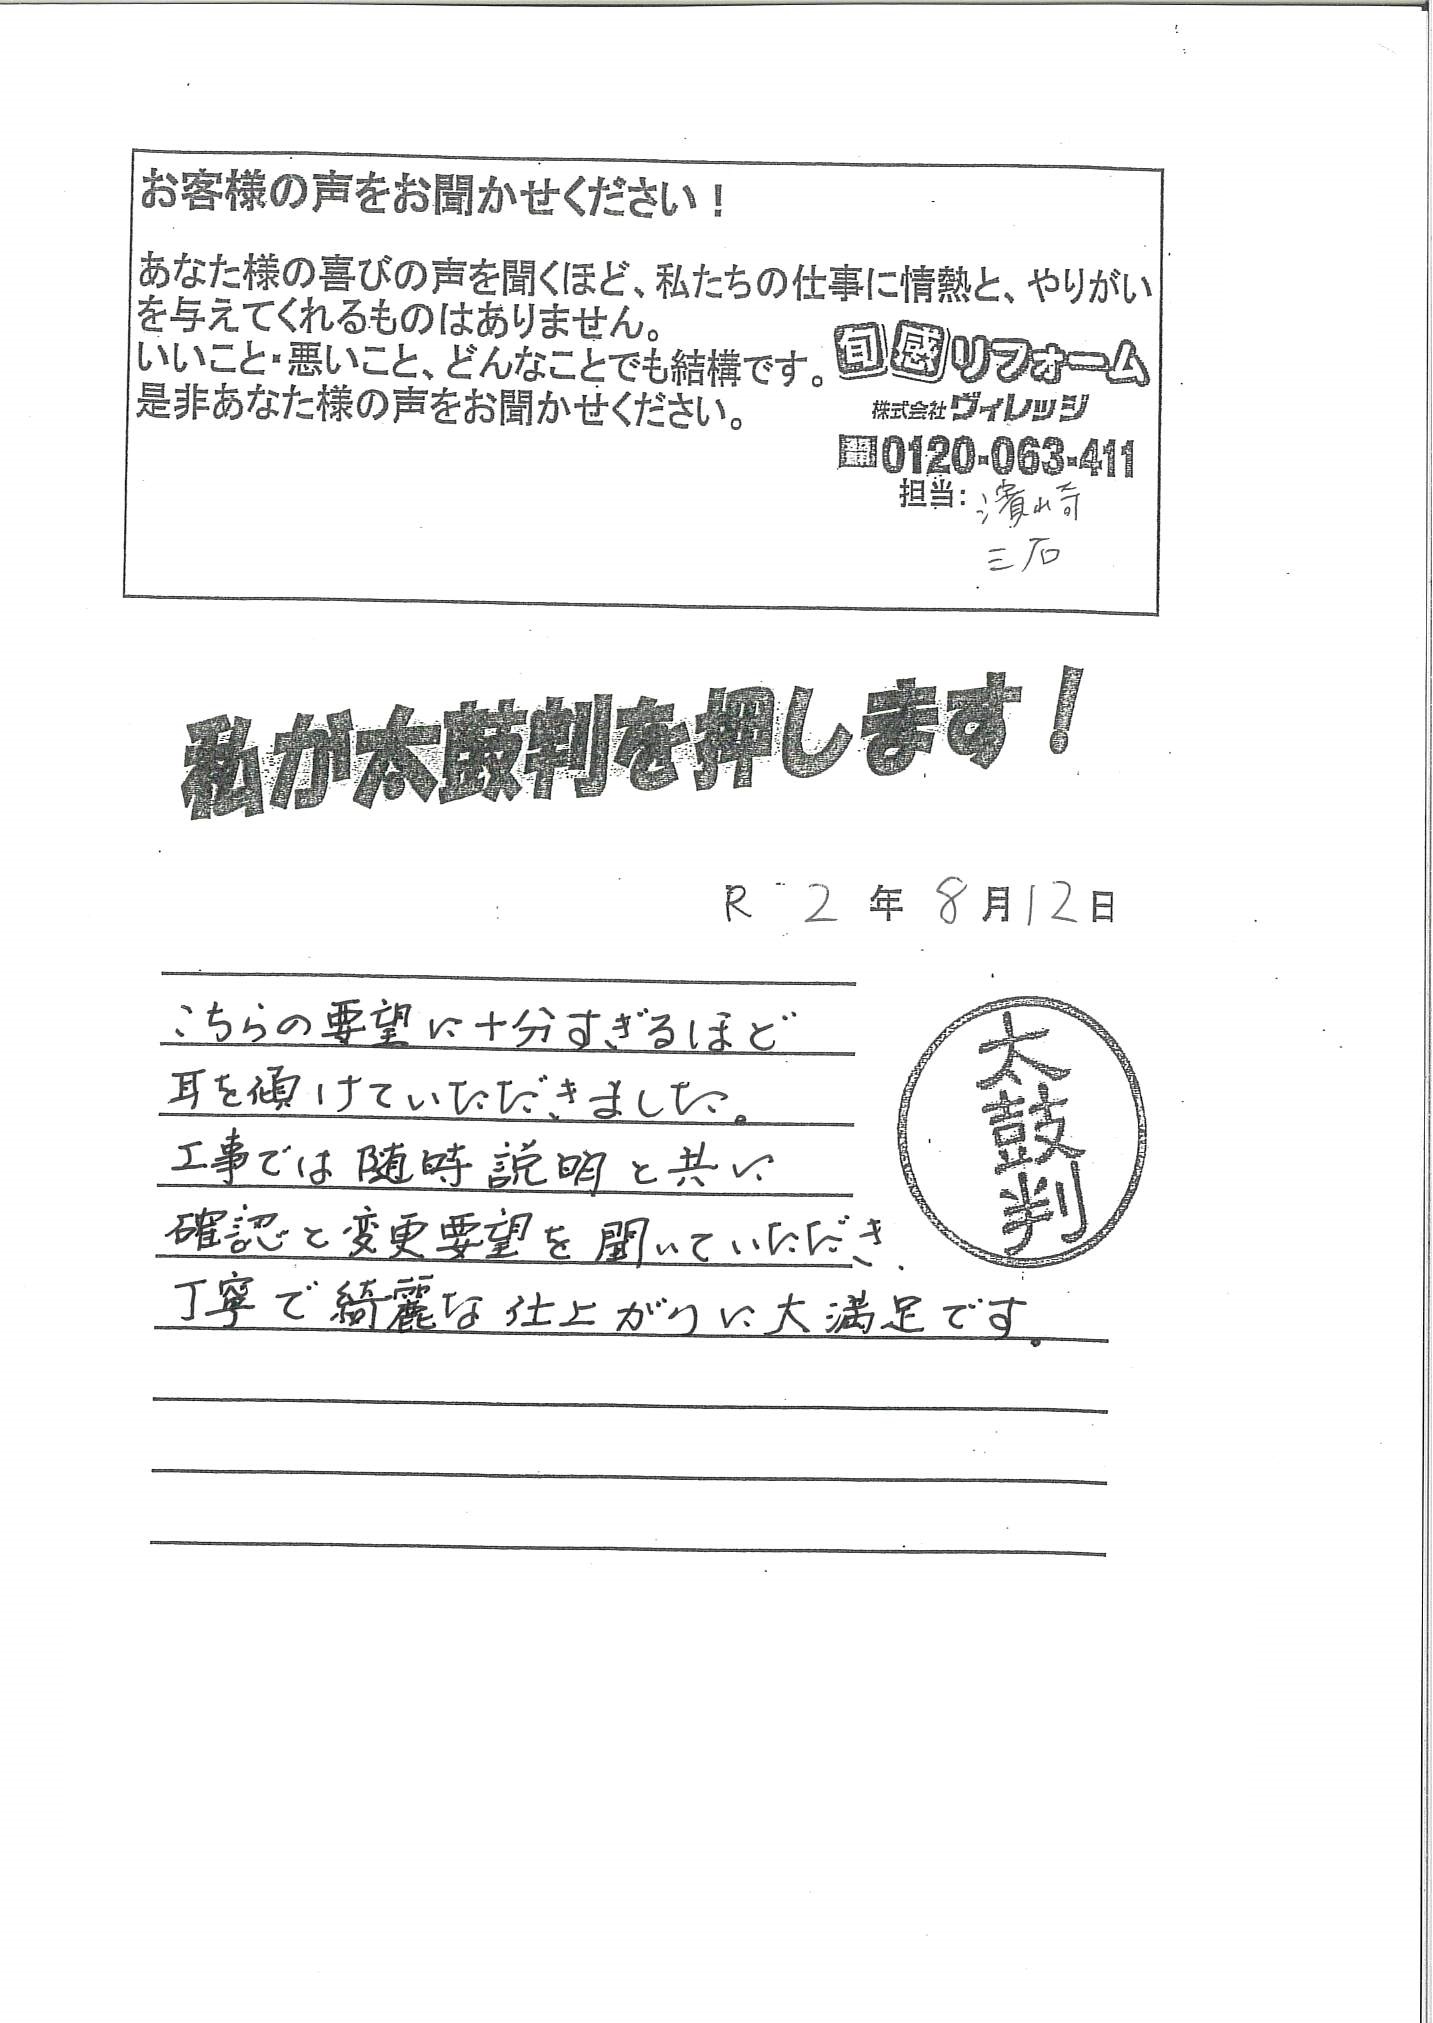 お客様の声をお聞かせください！
あなた様の喜びの声を聞くほど、私たちの仕事に情熱と、やりがい
を与えてくれるものはありません。
いいこと・悪いこと、どんなことでも結構です。
是非あなた様の声をお聞かせください。
旬感リフォーム
株式会社ヴィレッジ
0120-063-411
担当：濱崎
三石
私が太鼓判を押します！
R 2 年 8 月 12 日
こちらの要望に十分すぎるほど
耳を傾けていただきました。
工事では随時説明と共に
確認と変更要望を聞いていただき、
丁寧で綺麗な仕上がりに大満足です。
太鼓判